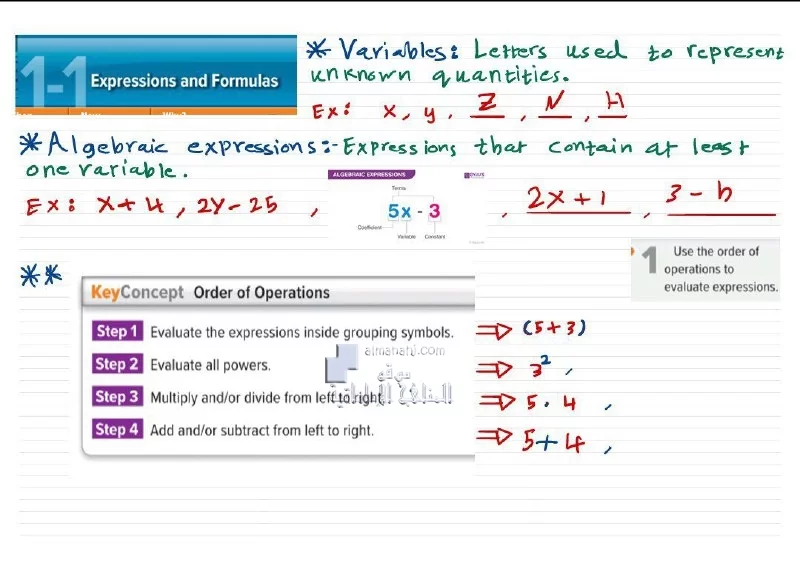 1-1 Expressions and Formulas
* Variables: Letters used to represent
unknown quantities.
Ex: x, y, Z, N, H
* Algebraic expressions:- Expressions that contain at least
one variable.
Ex: x + 4, 2y - 25,
ALGEBRAIC EXPRESSIONS
Terms
5x - 3
Coefficient
Variable Constant
, 2x + 1, 3 - b
1 Use the order of
operations to
evaluate expressions.
**
KeyConcept Order of Operations
Step 1 Evaluate the expressions inside grouping symbols. ⇒ (5 + 3)
Step 2 Evaluate all powers. ⇒ 3² ,
Step 3 Multiply and/or divide from left to right. ⇒ 5 . 4 ,
Step 4 Add and/or subtract from left to right. ⇒ 5 + 4 ,
almanahj.com
موقع
المناهج الإماراتية